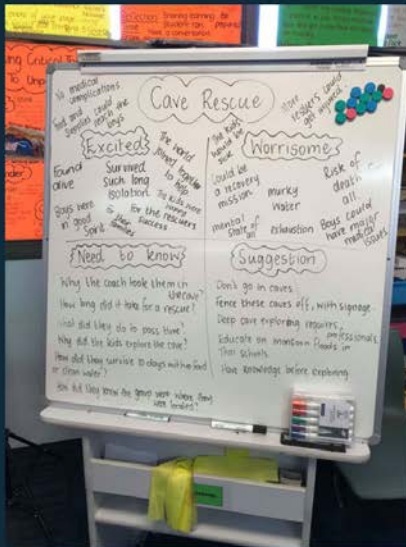 Cave Rescue
No medical
complications
Food and
supplies could
reach the
boys
Excited
Found
alive
Survived
such long
isolation
The world
joined together
to help
Boys were
in good
Spirit
The kids were
families
for the rescuers
success
More
rescuers could
get injured
Worrisome
The kids
would be
sick
Could be
a recovery
mission
murky
water
Risk of
death
all
mental
state of
exhaustion
Boys could
have major
medical
issues
Need to know
Why the coach took them in
the cave?
How long did it take for a rescue?
What did they do to pass time?
Why did the kids explore the cave?
How did they survive 10 days without food
or clean water?
How did they know the group were where they
were located?
Suggestion
Don't go in caves
Fence these caves off, with signage.
Deep cave exploring requires
professionals.
Educate on monsoon floods in
Thai schools.
Have knowledge before exploring